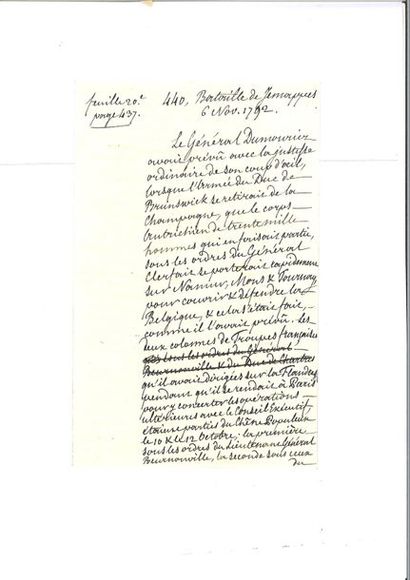 feuille 20.e
page 437.
440, Bataille de Jemappes
6 Nov. 1792.
Le Général Dumouriez
avait prévu avec la justesse
ordinaire de son coup d'œil,
lorsque l'Armée du Duc de
Brunswick se retirait de la
Champagne, que le corps
Autrichien de trente mille
hommes qui en faisait partie,
sous les ordres du Général
Clerfait se porterait rapidement
sur Namur, Mons & Tournay
pour couvrir & défendre la
Belgique, & cela s'était fait,
comme il l'avait prévu. Les
deux colonnes de Troupes françaises
sous les ordres du Général
Beurnonville & du Duc de Chartres
qu'il avait dirigées sur la Flandre
pendant qu'il se rendait à Paris
pour y concerter les opérations
ultérieures avec le Conseil Exécutif,
étaient parties du Chêne Populeux
le 10 & le 12 Octobre: la première
sous les ordres du Lieutenant Général
Beurnonville, la seconde sous ceux
du